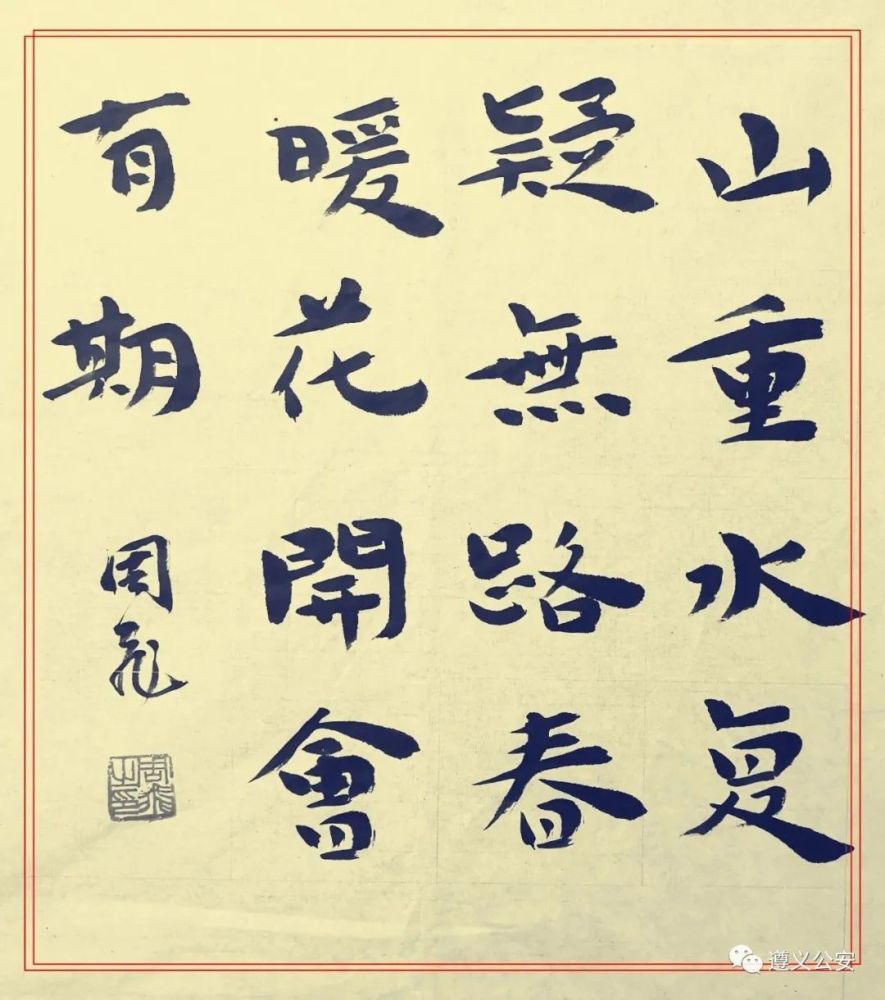 山重水复
疑無路春
暖花開會
有期
周飛
周飛之印
遵义公安